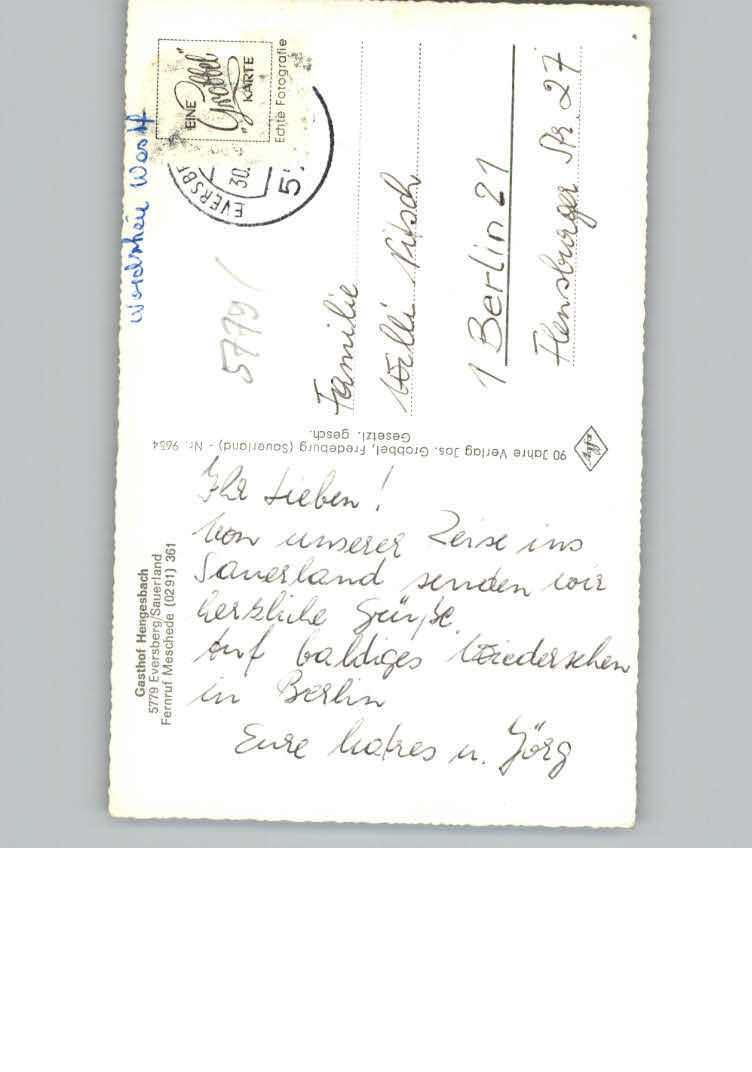 Gasthof Hengesbach
5779 Eversberg/Sauerland
Fernruf Meschede (0291) 361
Ihr Lieben!
Von unserer Reise ins
Sauerland senden wir
herzliche Grüße.
Auf baldiges Wiedersehen
in Berlin
Eure u. Jörg
90 Jahre Verlag Jos. Grobbel, Fredeburg (Sauerland) - Nr. 9654
Gesetzl. gesch.
Agfa
EINE
"Grobbel"
KARTE
Echte Fotografie
EVERSBE
30.
5779
Familie
Willi Pitsch
1 Berlin 21
Flensburger Str. 27